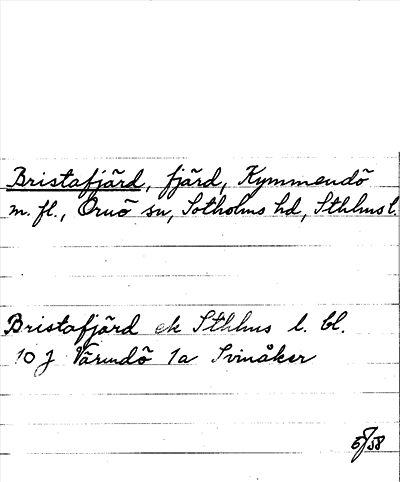 Bristafjärd, fjärd, Kymmendö
m. fl., Ornö sn, Sotholms hd, Sthlms l.
Bristafjärd ek Sthlms l. bl.
10 J Värmdö 1a Svinåker